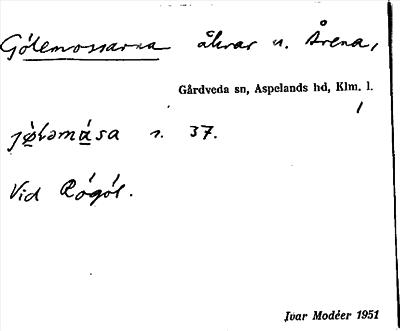 Gölemossarna åkrar u. Årena,
Gårdveda sn, Aspelands hd, Klm. l.
s. 37.
Vid Rågöl.
Ivar Modéer 1951